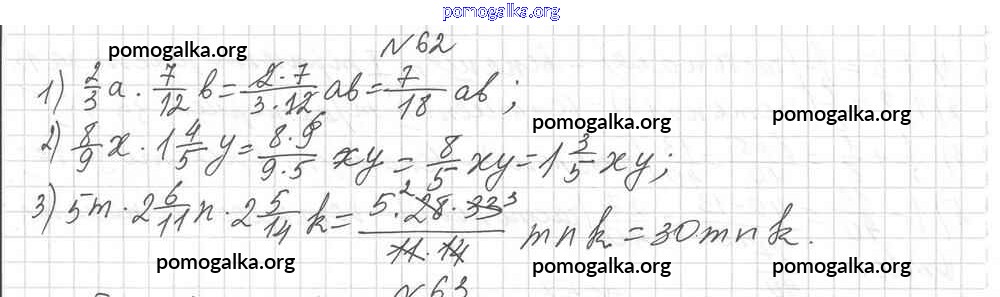 pomogalka.org
N 62
pomogalka.org
1) 2/3 a · 7/12 b = 2·7/3·12 ab = 7/18 ab;
pomogalka.org pomogalka.org
2) 8/9 x · 1 4/5 y = 8·9/9·5 xy = 8/5 xy = 1 3/5 xy;
3) 5m · 2 6/11 n · 2 5/14 k = 5·28·33/11·14 mnk = 30mnk.
pomogalka.org pomogalka.org pomogalka.org
N 63